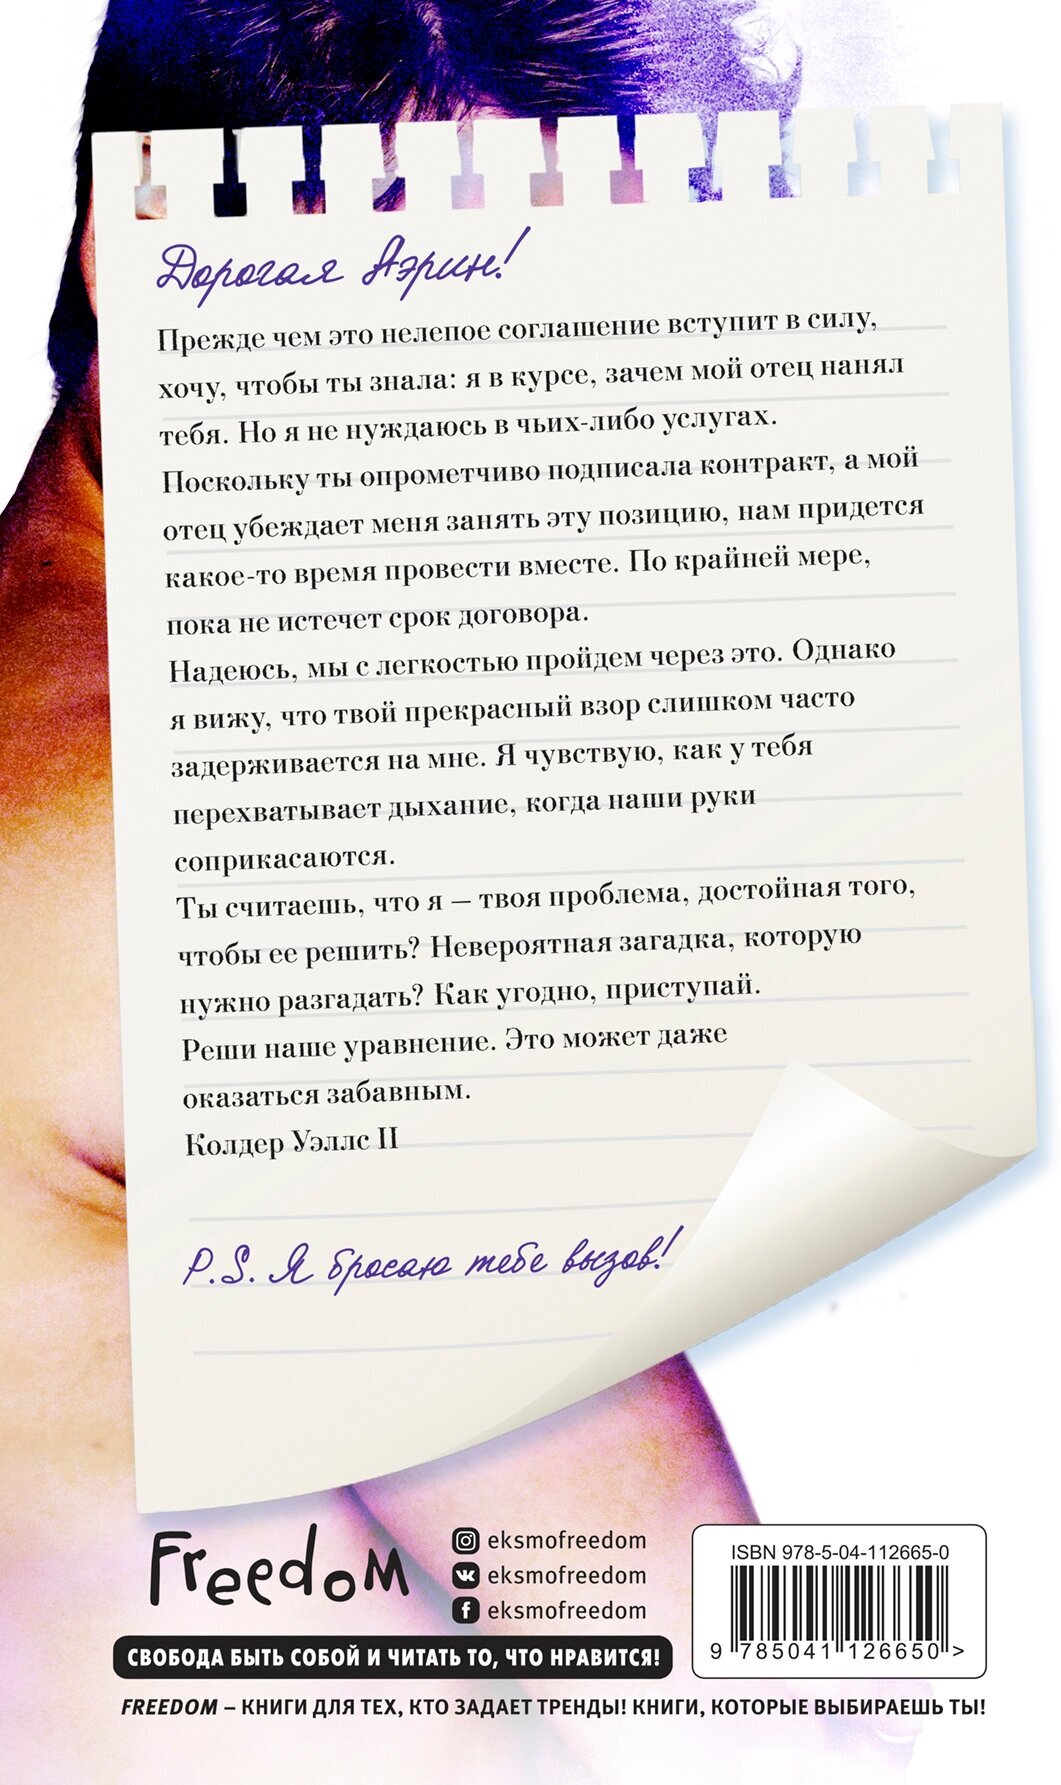 Дорогая Аэрин!
Прежде чем это нелепое соглашение вступит в силу,
хочу, чтобы ты знала: я в курсе, зачем мой отец нанял
тебя. Но я не нуждаюсь в чьих-либо услугах.
Поскольку ты опрометчиво подписала контракт, а мой
отец убеждает меня занять эту позицию, нам придется
какое-то время провести вместе. По крайней мере,
пока не истечет срок договора.
Надеюсь, мы с легкостью пройдем через это. Однако
я вижу, что твой прекрасный взор слишком часто
задерживается на мне. Я чувствую, как у тебя
перехватывает дыхание, когда наши руки
соприкасаются.
Ты считаешь, что я — твоя проблема, достойная того,
чтобы ее решить? Невероятная загадка, которую
нужно разгадать? Как угодно, приступай.
Реши наше уравнение. Это может даже
оказаться забавным.
Колдер Уэллс II
P.S. Я бросаю тебе вызов!
Freedom
eksmofreedom
eksmofreedom
eksmofreedom
СВОБОДА БЫТЬ СОБОЙ И ЧИТАТЬ ТО, ЧТО НРАВИТСЯ!
ISBN 978-5-04-112665-0
9 785041 126650 >
FREEDOM – КНИГИ ДЛЯ ТЕХ, КТО ЗАДАЕТ ТРЕНДЫ! КНИГИ, КОТОРЫЕ ВЫБИРАЕШЬ ТЫ!